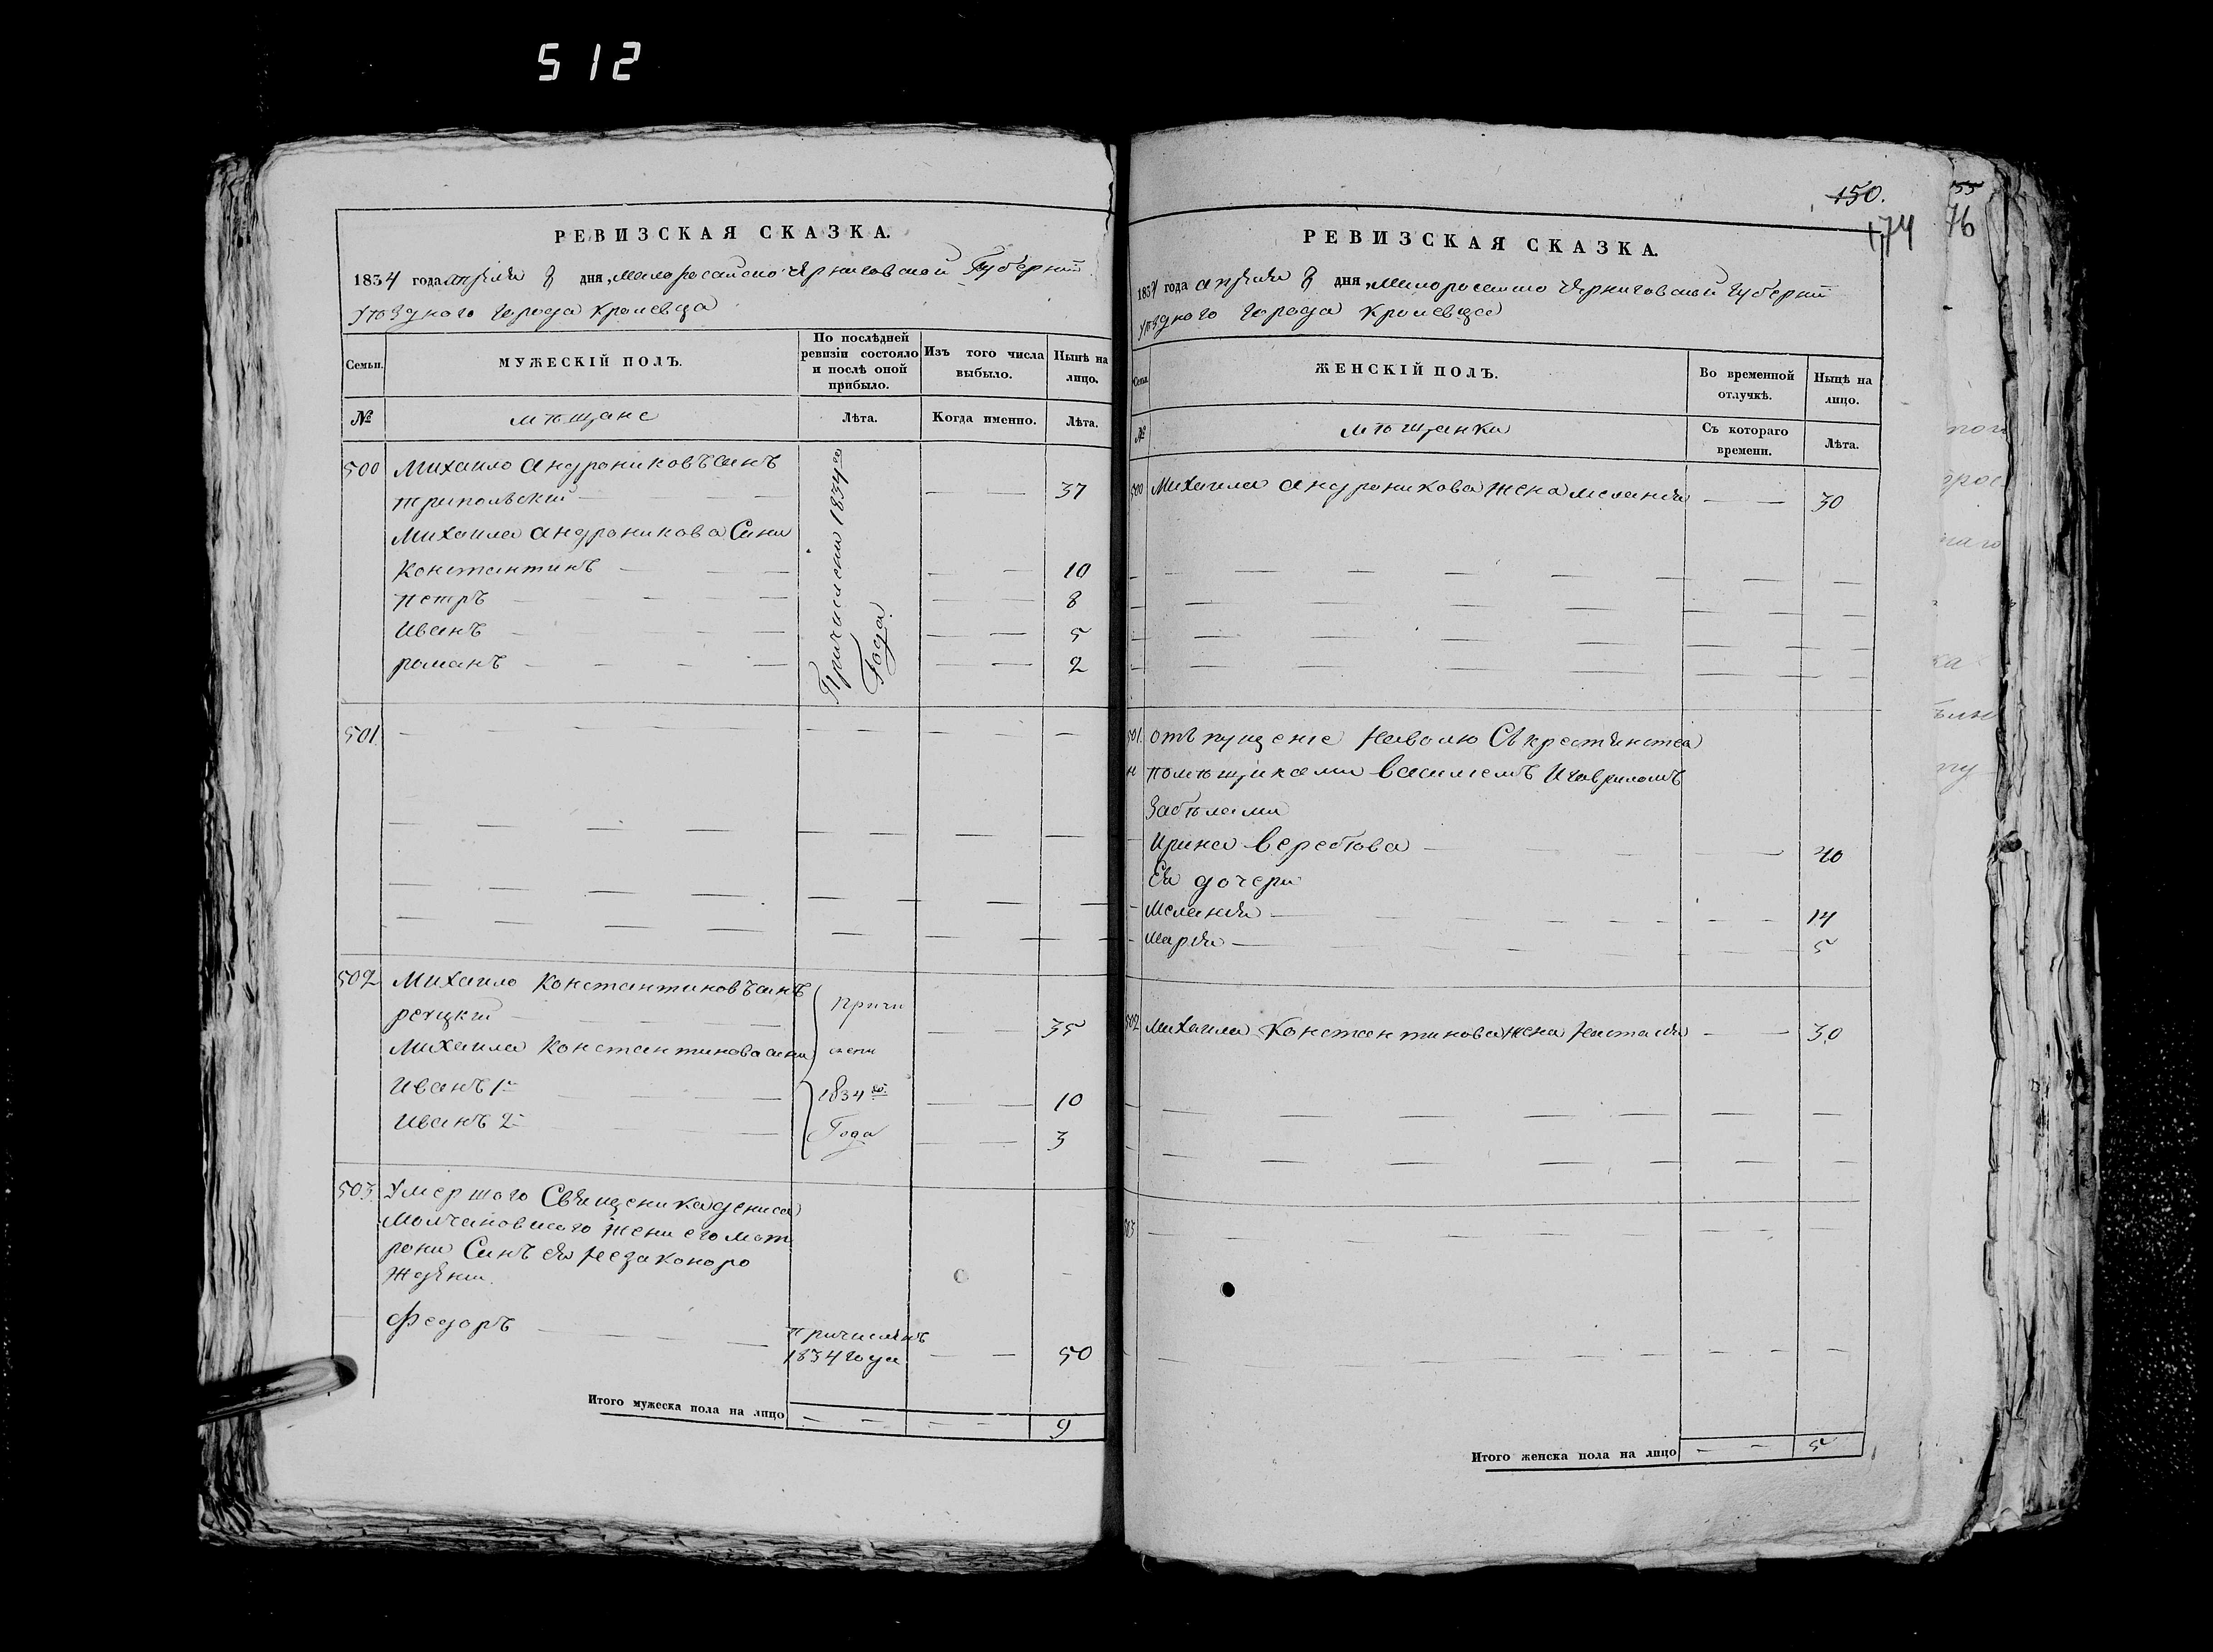 512
РЕВИЗСКАЯ СКАЗКА.
1834 года апреля 8 дня, Малоросийско Черниговской Губернiи
Уѣздного города Кролевца
Семьи.
МУЖЕСКІЙ ПОЛЪ.
По послѣдней ревизіи состояло и послѣ оной прибыло.
Изъ того числа выбыло.
Нынѣ на лицо.
№
мѣщане
Лѣта.
Когда именно.
Лѣта.
500 Михаило Андрониковъ синъ
трипольский — — — 37
Михаила Андроникова Сини
Константинъ — — — 10
петръ — — — 8
Иванъ — — — 5
романъ — — — 2
Причислени 1834го
Года
501
502 Михаило Константиновъ синъ
речцкий — — 35
Михаила Константинова сини
Иванъ 1й — — 10
Иванъ 2й — — 3
Причи
слени
1834го
Года
503 Умершого Священика дениса
Молчановского жени его мат
рони Синъ ея незаконоро
жденни.
Федоръ — — 50
причисленъ
1834 года
Итого мужеска пола на лицо — — — — 9
150.
174
155
76
РЕВИЗСКАЯ СКАЗКА.
1834 года апреля 8 дня, Малоросийско Черниговской губернiи
уѣздного города Кролевца
Семьи
ЖЕНСКІЙ ПОЛЪ.
Во временной отлучкѣ.
Нынѣ на лицо.
№
мѣщанки
Съ котораго времени.
Лѣта.
500 Михаила Андроникова жена мелания — — 30
501. отъпущение наволю Съ крестянства
помѣщиками василемъ И гавриломъ
Забѣлами
Ирина Веребiова — — 40
Ея дочери
Мелания — — — 14
мария — — — 5
502 Михаила Константинова жена Настасия — — 30
503
Итого женска пола на лицо — — 5